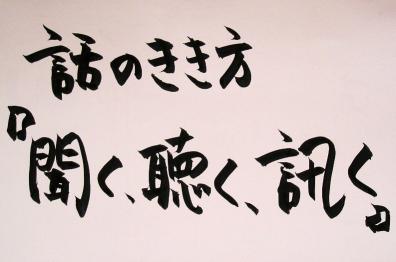 話のきき方
『聞く、聴く、訊く』